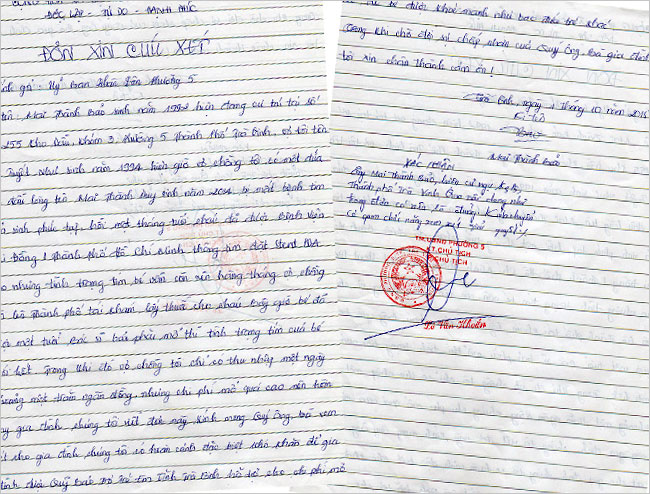 ĐỘC LẬP - TỰ DO - HẠNH PHÚC
ĐƠN XIN CỨU XÉT
gửi: Uỷ Ban Nhân Dân Phường 5
Mai Thành Bảo sinh năm 1992 hiện đang cư trú tại số
255 Kho Dầu, Khóm 3, Phường 5 Thành Phố Trà Vinh, có tôi tên
Tuyết Như sinh năm 1994 hiện giờ vợ chồng tôi có một đứa
đầu lòng tên Mai Thành Duy sinh năm 2014 bị mắt bệnh tim
sinh phức tạp, hồi một tháng tuổi cháu đã được Bệnh Viện
Đồng 1 Thành phố Hồ Chí Minh thông tim, đặt Stent PDA.
nhưng tình trạng tim bé vẫn còn nên hàng tháng vợ chồng
lên thành phố tái khám, lấy thuốc cho cháu. Bây giờ bé đã
một tuổi bác sĩ bảo phải mổ thì tình trạng tim của bé
hết. Trong khi đó vợ chồng tôi chỉ có thu nhập một ngày
một trăm ngàn đồng, nhưng chi phí mổ quá cao nên hôm
gia đình chúng tôi viết đơn này kính mong Quý ông, bà xem
cho gia đình chúng tôi có hoàn cảnh đặc biệt khó khăn để gia
được Quỹ Bảo trợ trẻ em Tỉnh Trà Vinh hỗ trợ cho chi phí mổ
bé được khoẻ mạnh như bao đứa trẻ khác
Trong khi chờ đợi sự chấp nhận của Quý ông, bà gia đình
tôi xin chân thành cảm ơn!
Trà Vinh, ngày 1 tháng 10 năm 2015
Mai Thành Bảo
XÁC NHẬN
Ông Mai Thành Bảo, hiện cư ngụ K3, P5,
Thành phố Trà Vinh. Hoàn cảnh đúng như
trong đơn có nêu là đúng. Kính chuyển
Cơ quan chức năng xem xét giải quyết
TM.UBND PHƯỜNG 5
KT.CHỦ TỊCH
CHỦ TỊCH